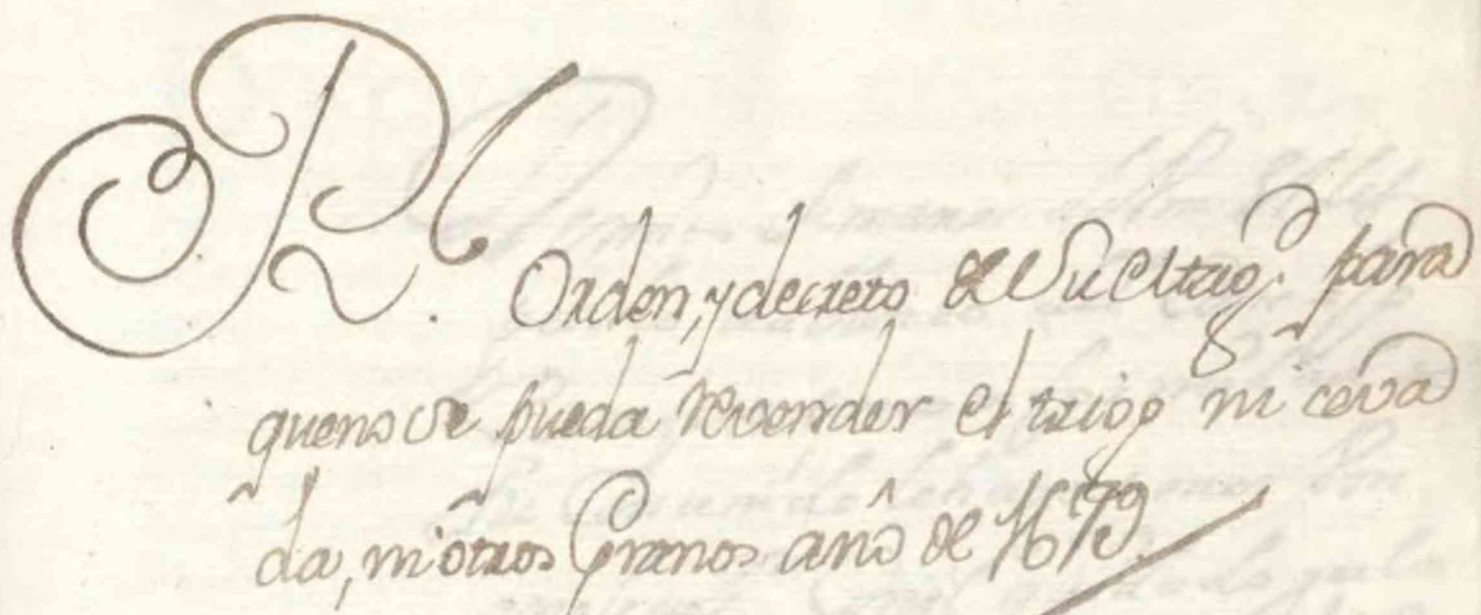 R. Orden, y decreto de Su Mag. para
que no se pueda revender el trigo ni ceva
da, ni otros Granos año de 1679